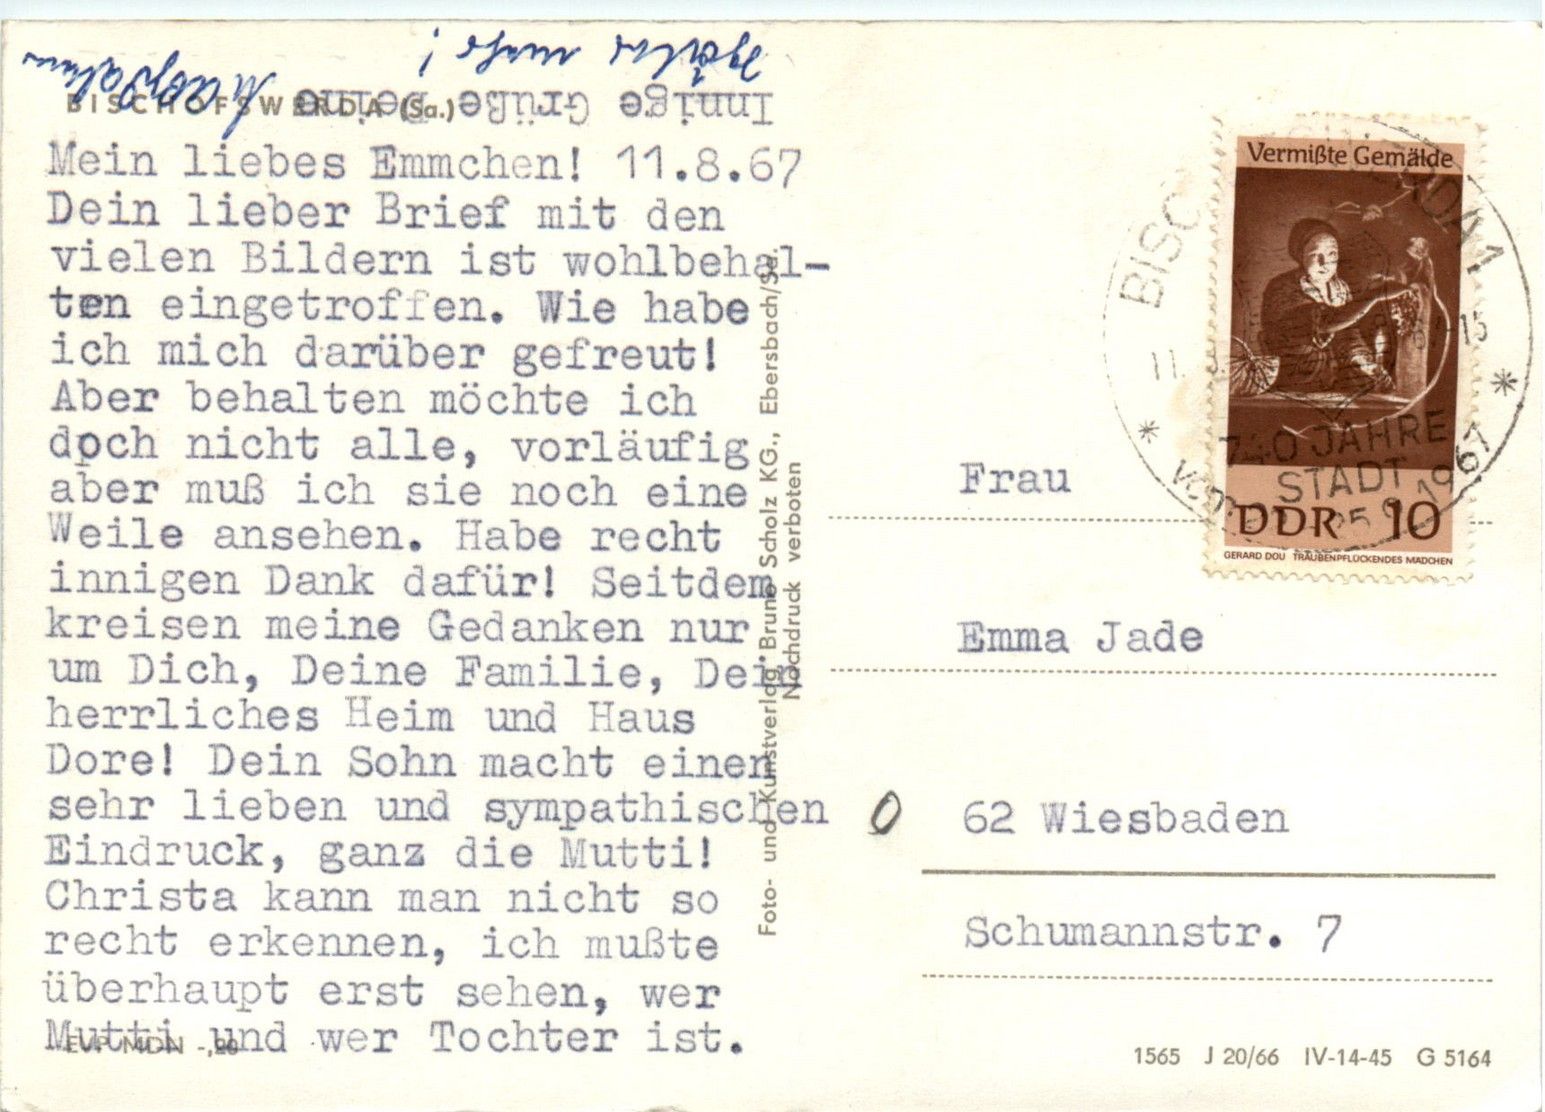 BISCHOFSWERDA (Sa.)
Mein liebes Emmchen! 11.8.67
Dein lieber Brief mit den
vielen Bildern ist wohlbehal-
ten eingetroffen. Wie habe
ich mich darüber gefreut!
Aber behalten möchte ich
doch nicht alle, vorläufig
aber muß ich sie noch eine
Weile ansehen. Habe recht
innigen Dank dafür! Seitdem
kreisen meine Gedanken nur
um Dich, Deine Familie, Dein
herrliches Heim und Haus
Dore! Dein Sohn macht einen
sehr lieben und sympathischen
Eindruck, ganz die Mutti!
Christa kann man nicht so
recht erkennen, ich mußte
überhaupt erst sehen, wer
Mutti und wer Tochter ist.
EVP MDN -,20
Innige Grüße Deine
später mehr!
Foto- und Kunstverlag Bruno Scholz KG., Ebersbach/Sa.
Nachdruck verboten
Vermißte Gemälde
DDR 10
GERARD DOU TRAUBENPFLÜCKENDES MÄDCHEN
11. 15
740 JAHRE
STADT
1967
Frau
Emma Jade
62 Wiesbaden
Schumannstr. 7
1565 J 20/66 IV-14-45 G 5164